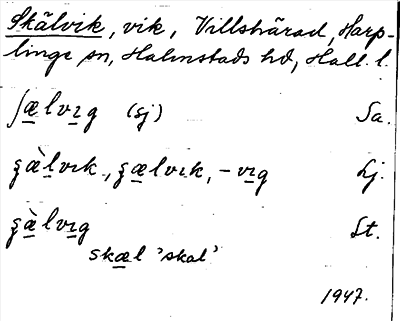 Skälvik, vik, Villshärad, Harp-
linge sn, Halmstads hd, Hall. l.
ʃælvɪg (sj) Sa.
ʂæ̀lvɪk, ʂælvɪk, -vɪg Lj.
ʂæ̀lvɪg St.
skæl 'skal'
1947.